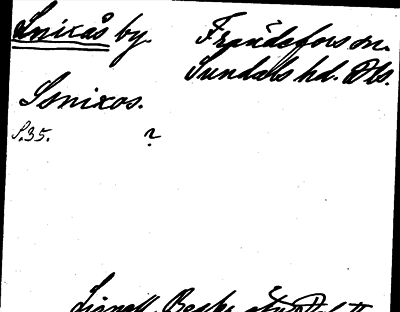 Snixås by. Frändefors sn.
Sundals hd. Dls.
Snixos.
S. 35. ?
Lignell, Beskr.